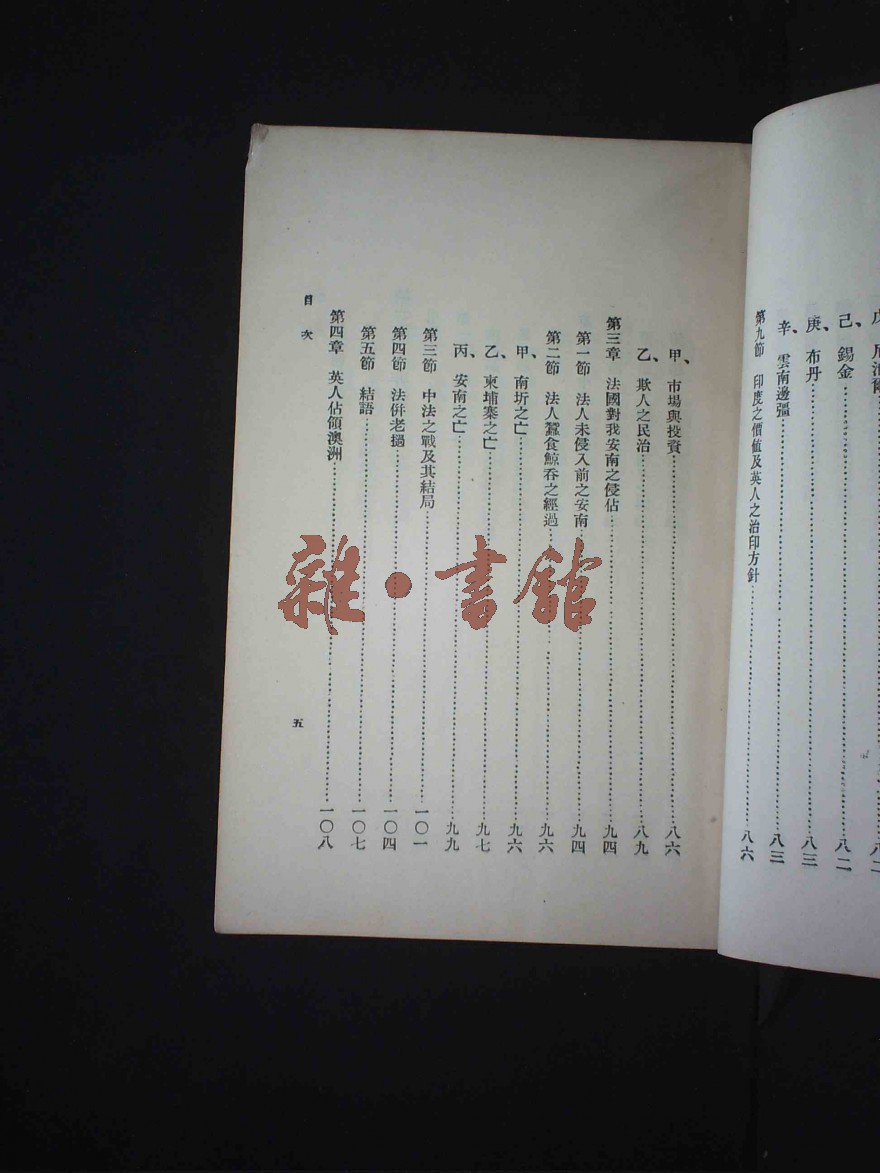 己、錫金……八二
庚、布丹……八三
辛、雲南邊疆……八三
第九節 印度之價値及英人之治印方針……八六
甲、市場與投資……八六
乙、欺人之民治……八九
第三章 法國對我安南之侵佔……九四
第一節 法人未侵入前之安南……九四
第二節 法人蠶食鯨吞之經過……九六
甲、南圻之亡……九六
乙、柬埔寨之亡……九七
丙、安南之亡……九九
第三節 中法之戰及其結局……一〇一
第四節 法倂老撾……一〇四
第五節 結語……一〇七
第四章 英人佔領澳洲……一〇八
目次
五
雜·書館